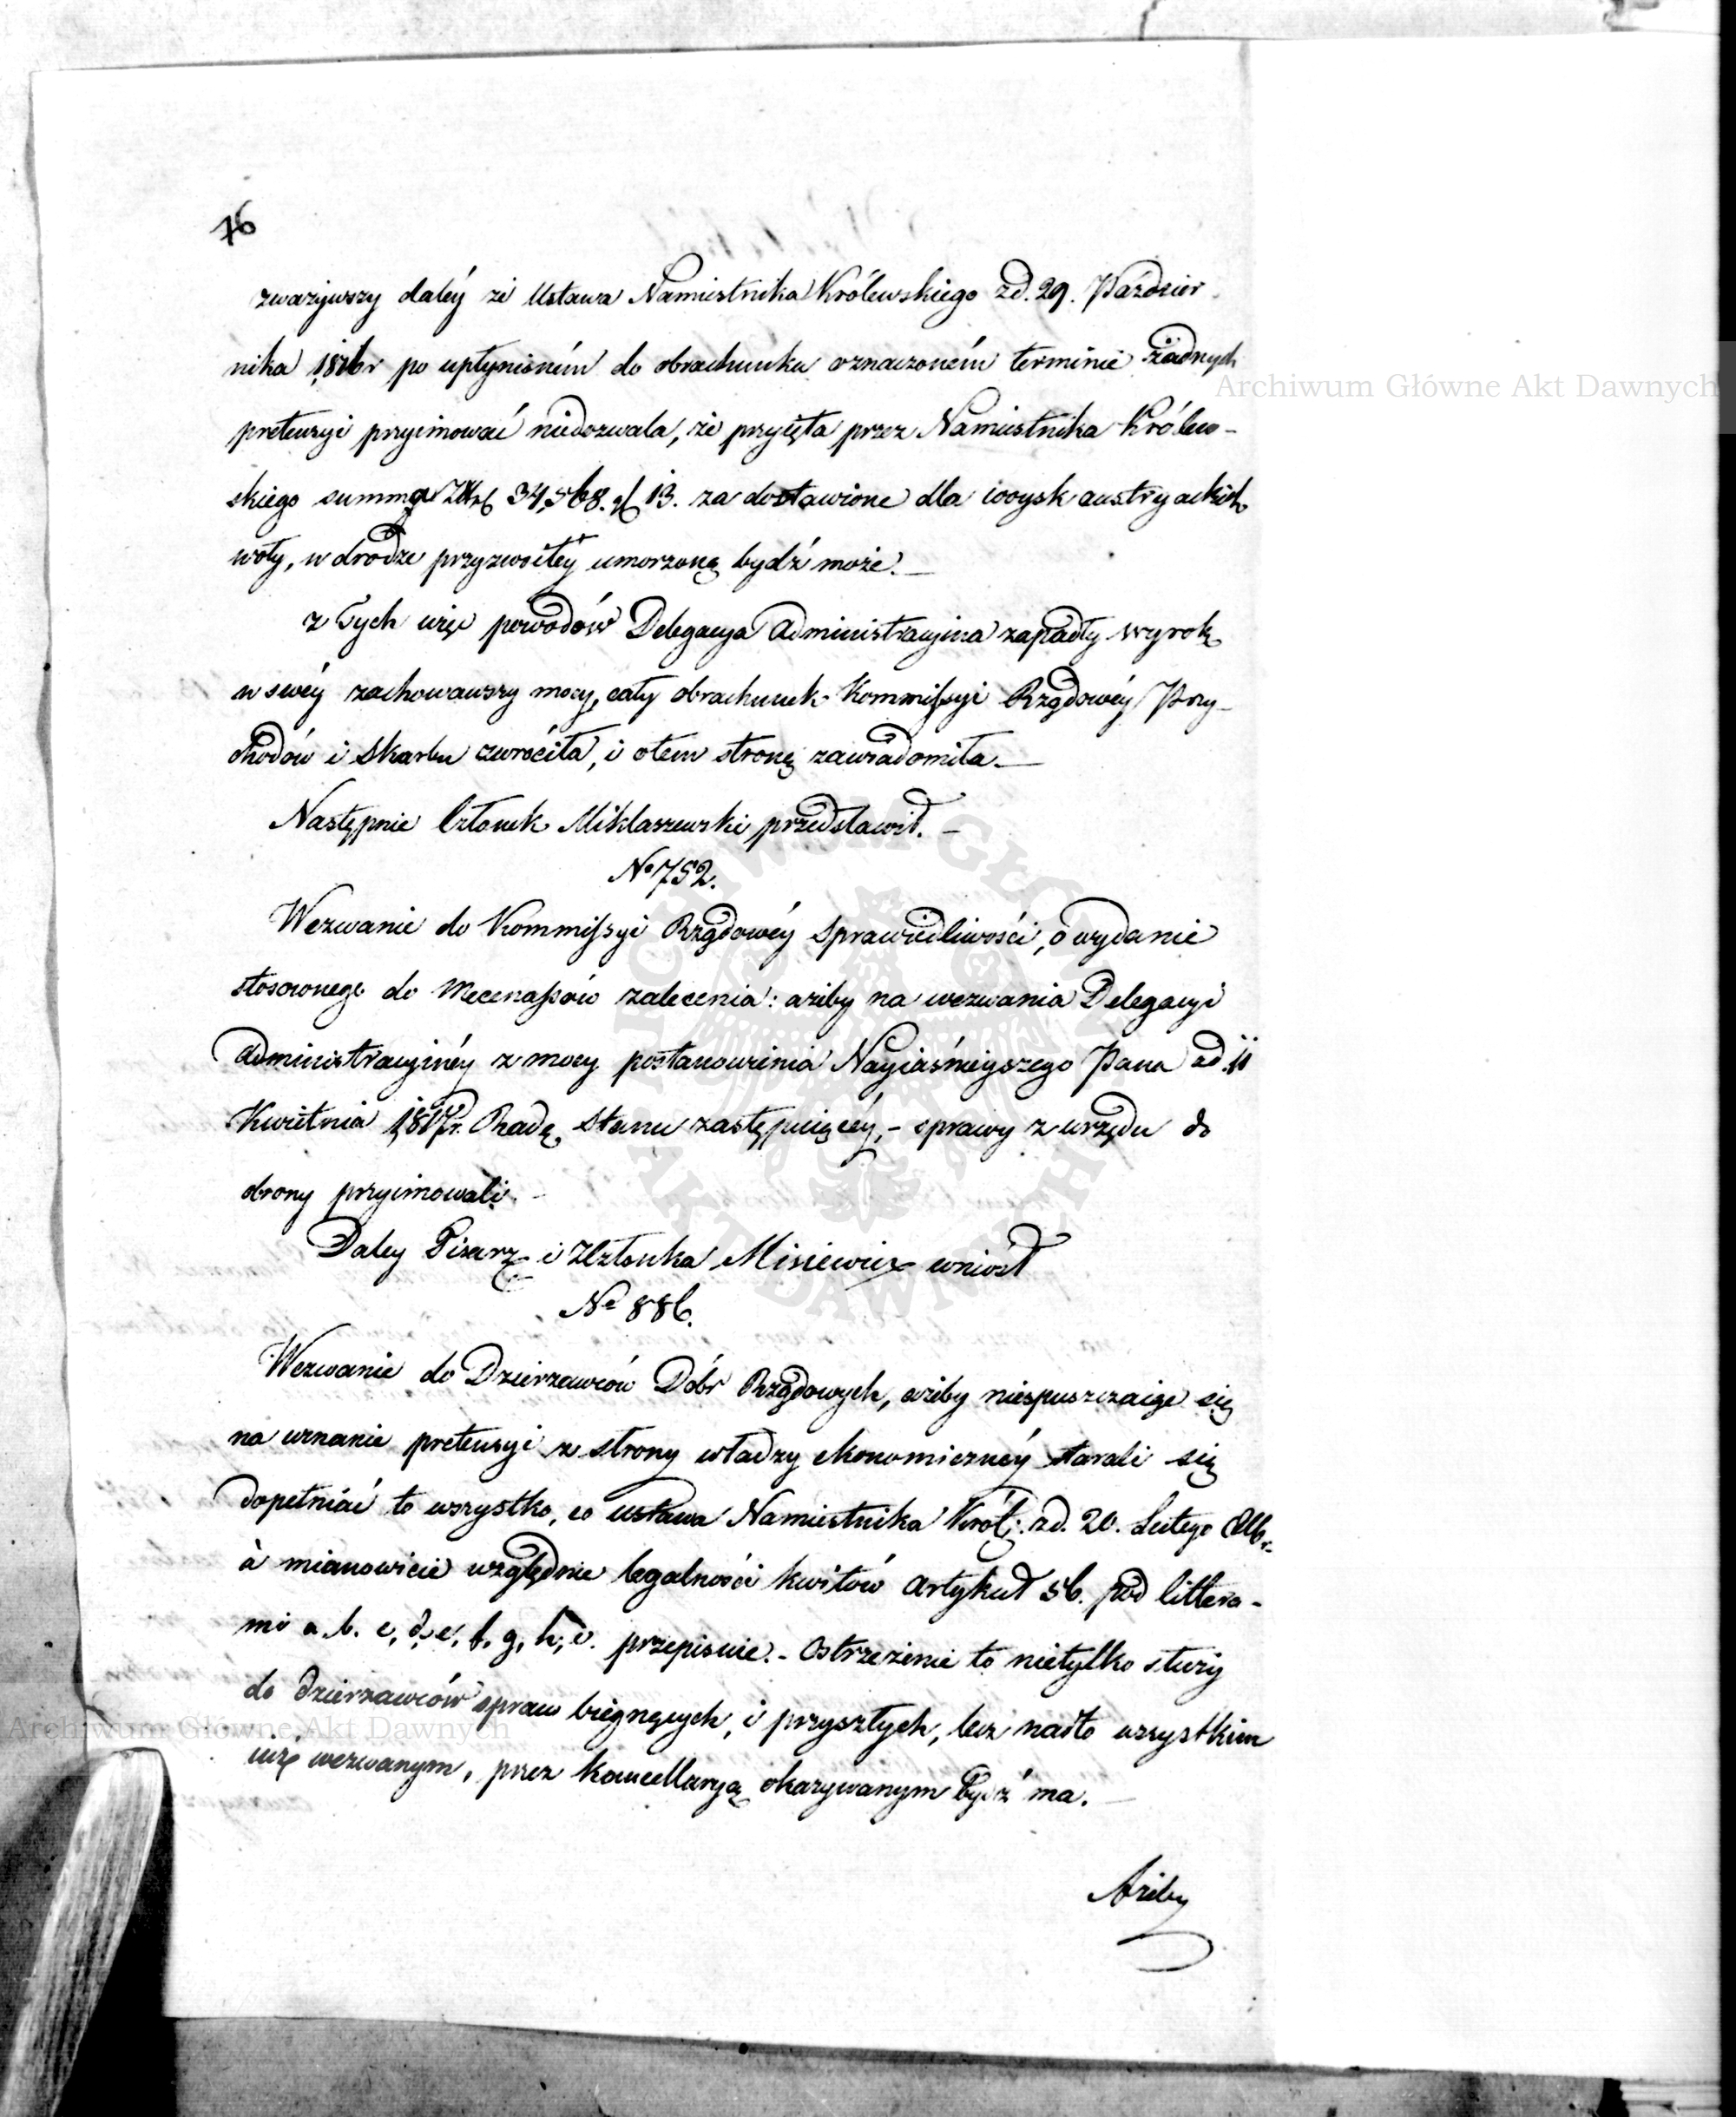 76
zważywszy daléy że Ustawa Namiestnika Królewskiego z d. 29. Paździer
nika 1816r po upłynioném do obrachunku oznaczoném terminie żadnych
pretensyi przyimować niedozwala, że przyięta przez Namiestnika Królew-
skiego summa 34,568. gl 13. za dostawione dla woysk austryackich
woły, w drodze przyzwoitéy umorzoną bydź może. —
z tych więc powodów Delegacya Administracyina zapadły wyrok
w swéy zachowawszy mocy, cały obrachunek Kommissyi Rządowéy Przy-
chodów i Skarbu zwróciła, i otem stronę zawiadomiła. —
Następnie Członek Miklaszewski przedstawił. —
No 752.
Wezwanie do Kommissyi Rządowéy Sprawiedliwości, o wydanie
stosownego do Mecenasów zalecenia: ażeby na wezwania Delegacyi
Administracyinéy z mocy postanowienia Nayiaśnieyszego Pana z d. 11
Kwietnia 1817r. Radę Stanu zastępuiącéy, - sprawy z urzędu do
obrony przyimowali. -
Daley Pisarz i Zczłonka Misiewicz wniósł
No 886.
Wezwanie do Dzierżawców Dóbr Rządowych, ażeby niespuszczaiąc się
na uznanie pretensyi z strony władzy ekonomicznéy starali się
dopełniać to wszystko, co ustawa Namiestnika Król: z d. 20. Lutego 816r.
à mianowicie względnie legalności kwitów artykuł 56. pod littera-
mi a. b. c, d, e, f. g, h, i. przepisuie. - Ostrzeżenie to nietylko służy
do dzierżawców spraw bieżących, i przyszłych, lecz nadto wszystkim
iuż wezwanym, przez kancellaryą okazywanym bydź ma. —
Ażeby
Archiwum Główne Akt Dawnych
ARCHIWUM GŁÓWNE AKT DAWNYCH
Archiwum Główne Akt Dawnych